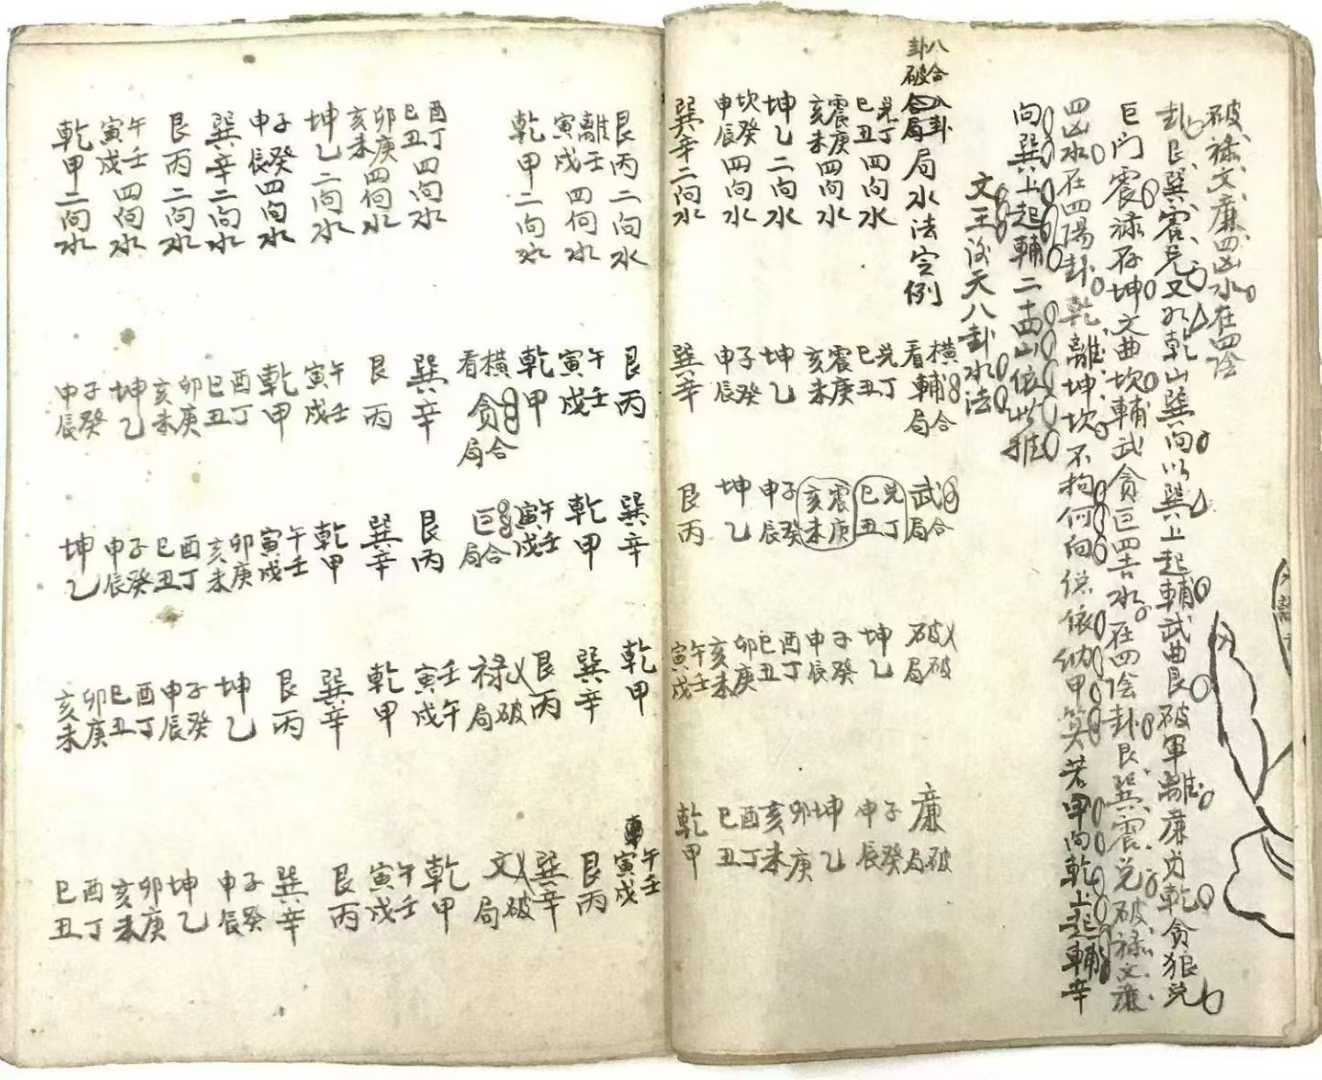 破禄文廉四凶水在四陰
卦艮巽震兌又如乾山巽向以巽上起輔武曲艮破軍離廉貞乾貪狼兌
巨門震祿存坤文曲坎輔武貪巨四吉水在四陰卦艮巽震兌破禄文廉
四凶水在四陽卦乾離坤坎不拘何向俱依納甲算若甲向乾上起輔辛
向巽上起輔二十四山依此推
文王後天八卦水法
八合八卦
卦破合局局水法定例
兌丁巳丑四向水
震庚亥未四向水
坤乙二向水
坎癸申辰四向水
巽辛二向水
橫看輔合局
兌丁巳丑
震庚亥未
坤乙
子癸申辰
巽辛
武合局
兌丁巳丑
震庚亥未
子癸申辰
坤乙
艮丙
破破局
坤乙
子癸申辰
酉丁巳丑
卯庚亥未
午壬寅戌
廉破局
子癸申辰
坤乙
卯庚亥未
酉丁巳丑
乾甲
艮丙二向水
離壬寅戌四向水
乾甲二向水
酉丁巳丑四向水
卯庚亥未四向水
坤乙二向水
子癸申辰四向水
巽辛二向水
艮丙二向水
午壬寅戌四向水
乾甲二向水
艮丙
午壬寅戌
乾甲
橫看貪合局
巽辛
艮丙
午壬寅戌
乾甲
酉丁巳丑
卯庚亥未
坤乙
子癸申辰
巽辛
乾甲
午壬寅戌
巨合局
艮丙
巽辛
乾甲
午壬寅戌
卯庚亥未
酉丁巳丑
子癸申辰
坤乙
乾甲
巽辛
艮丙
禄破局
壬午寅戌
乾甲
巽辛
艮丙
坤乙
子癸申辰
酉丁巳丑
卯庚亥未
午壬寅戌
艮丙
巽辛
文破局
乾甲
午壬寅戌
艮丙
巽辛
子癸申辰
坤乙
卯庚亥未
酉丁巳丑